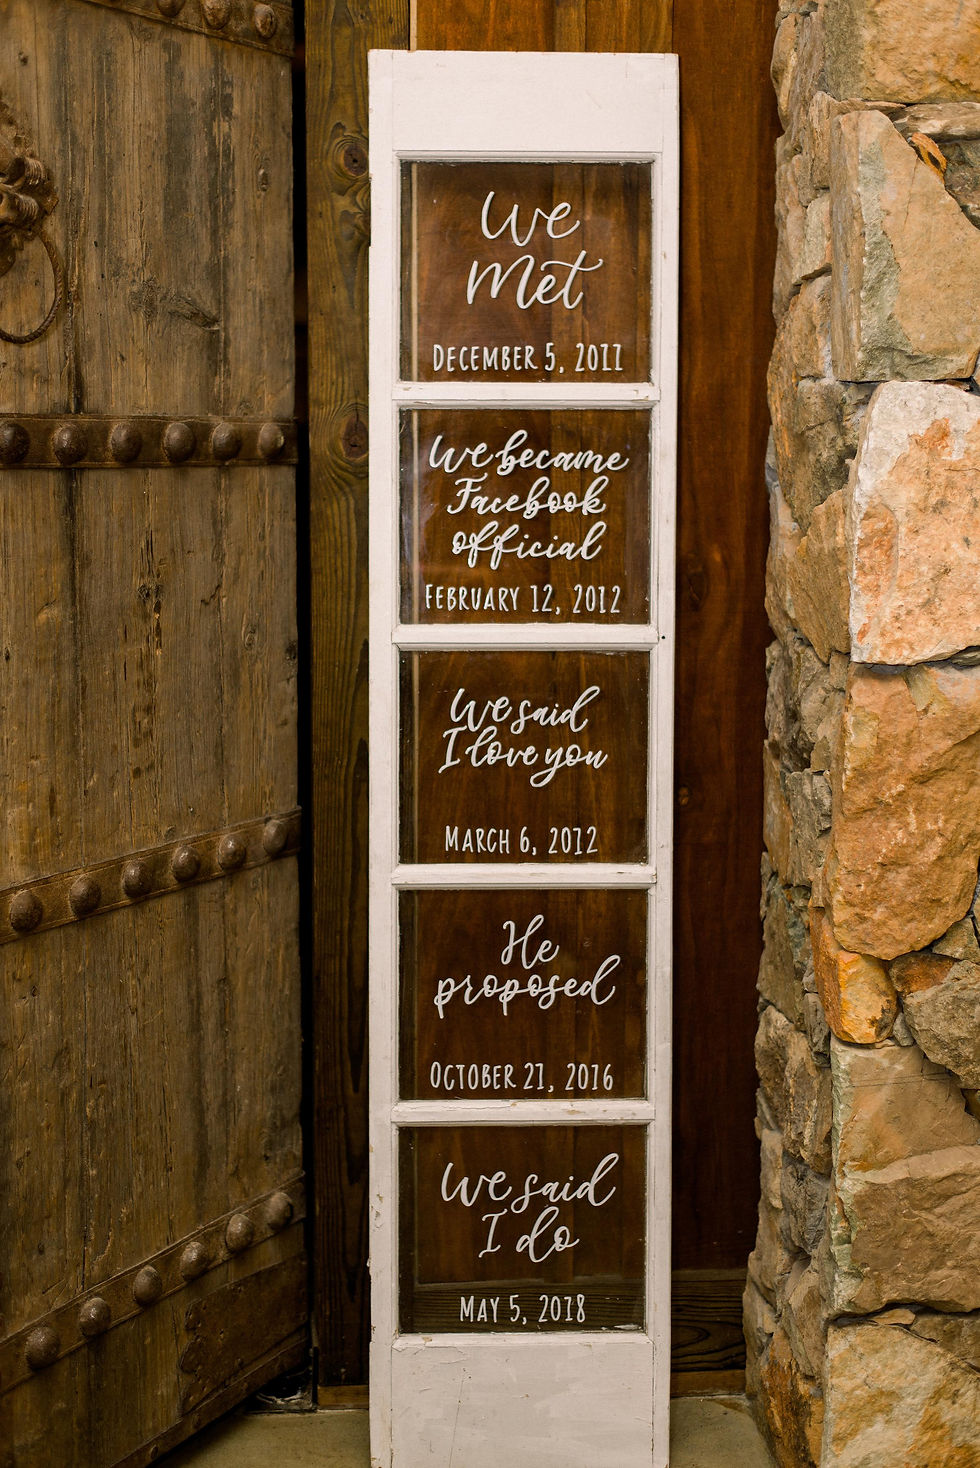 We
Met
DECEMBER 5, 2011
We became
Facebook
official
FEBRUARY 12, 2012
We said
I love you
MARCH 6, 2012
He
proposed
OCTOBER 21, 2016
We said
I do
MAY 5, 2018